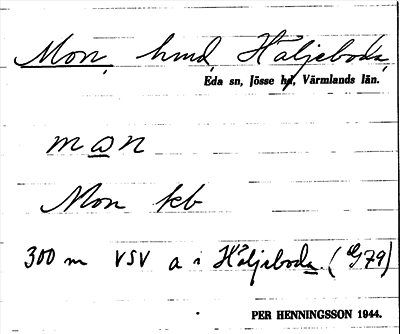 Mon, hmd, Häljeboda,
Eda sn, Jösse hd, Värmlands län.
man
Mon kb
300 m VSV a i Häljeboda (G79)
PER HENNINGSSON 1944.